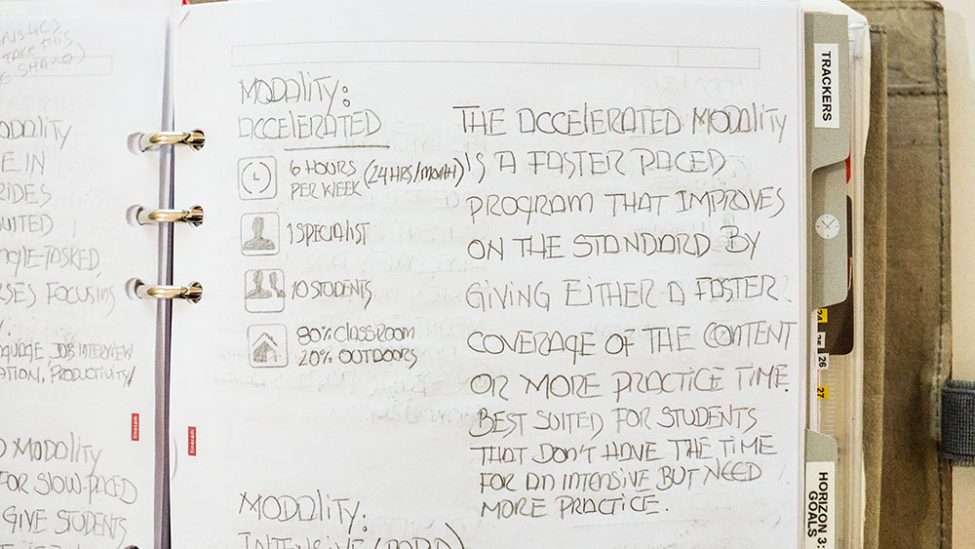 TAKE THIS
SHARE)
MODALITY
E IN
RIDES
SUITED
-TASKED,
SES FOCUSING
JOB INTERVIEW
ATION, PRODUCTIVITY
MODALITY
FOR SLOW-PACED
GIVE STUDENTS
MODALITY:
ACCELERATED
6 HOURS (24 HRS/MONTH)
PER WEEK
1 SPECIALIST
10 STUDENTS
80% CLASSROOM
20% OUTDOORS
MODALITY:
INTENSIVE
THE ACCELERATED MODALITY
IS A FASTER PACED
PROGRAM THAT IMPROVES
ON THE STANDARD BY
GIVING EITHER A FASTER
COVERAGE OF THE CONTENT
OR MORE PRACTICE TIME.
BEST SUITED FOR STUDENTS
THAT DON'T HAVE THE TIME
FOR AN INTENSIVE BUT NEED
MORE PRACTICE.
TRACKERS
24
25
26
27
HORIZON 3:
GOALS